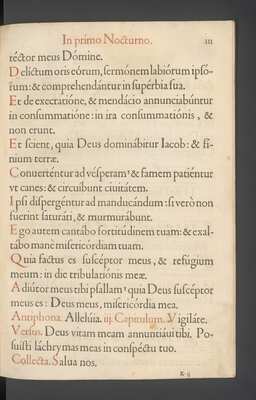 In primo Nocturno. III
réctor meus Dómine.
Delíctum oris eórum, sermónem labiórum ipsó-
rum: & comprehendántur in supérbia sua.
Et de execratióne, & mendácio annunciabúntur
in consummatióne: in ira consummatiónis, &
non erunt.
Et scient, quia Deus dominábitur Iacob: & fí-
nium terræ.
Conuerténtur ad vésperam, & famem patiéntur
vt canes: & circuíbunt ciuitátem.
Ipsi dispergéntur ad manducándum: si verò non
fúerint saturáti, & murmurábunt.
Ego autem cantábo fortitúdinem tuam: & exal-
tábo manè misericórdiam tuam.
Quia factus es suscéptor meus, & refúgium
meum: in die tribulatiónis meæ.
Adiútor meus tibi psallam, quia Deus suscéptor
meus es: Deus meus, misericórdia mea.
Antiphona. Allelúia. iij. Capitulum. Vigiláte.
Versus. Deus vitam meam annuntiáui tibi. Po-
suísti láchrymas meas in conspéctu tuo.
Collecta. Salua nos.
K ij